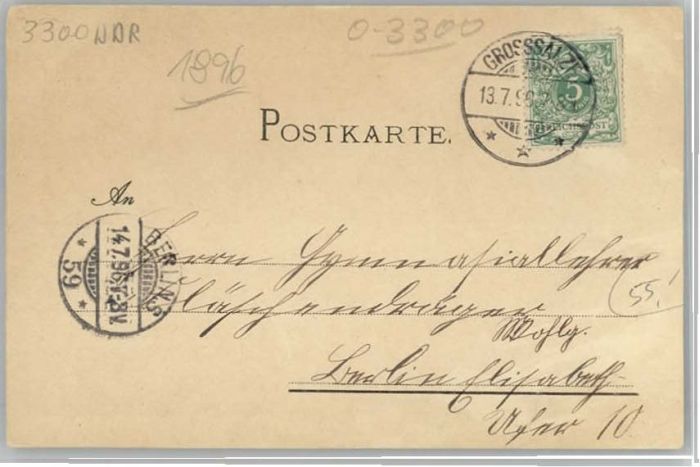 3300 NDR
0-3300
1896
GROSSSALZE
13.7.96
5
REICHSPOST
POSTKARTE.
An
BERLIN S
14.7.96
59
Herrn Gymnasiallehrer
55.
Wohlg.
Berlin Elisabeth-
Ufer 10.